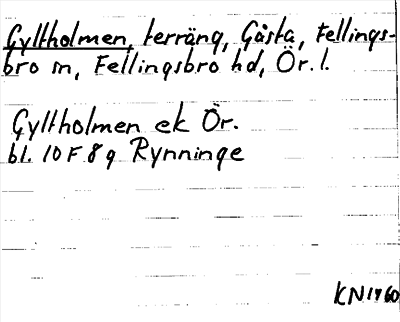 Gyltholmen, terräng, Gåsta, Fellings-
bro sn, Fellingsbro hd, Ör. l.
Gyltholmen ek Ör.
bl. 10 F 8 g Rynninge
KN 1960